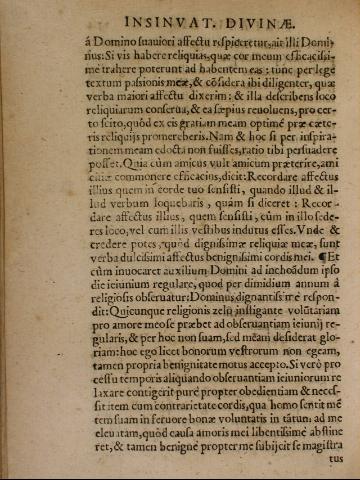 INSINVAT. DIVINÆ.
á Domino suauiori affectu respiceretur, ait illi Domi-
nus: Si vis habere reliquias, quæ cor meum efficacissi-
mè trahere poterunt ad habentem eas: tunc perlege
textum passionis meæ, & cõsidera ibi diligenter, quæ
verba maiori affectu dixerim: & illa describens loco
reliquiarum conserua, & ea sæpius reuoluens, pro cer-
to scito, quòd ex eis gratiam meam optimè præ cæte-
ris reliquijs promereberis. Nam & hoc si per inspira-
tionem meam edocta non fuisses, ratio tibi persuadere
posset. Quia cùm amicus vult amicum præterire, ami
citiæ commonere efficacius, dicit: Recordare affectus
illius quem in corde tuo sensisti, quando illud & il-
lud verbum loquebaris, quàm si diceret: Recor-
dare affectus illius, quem sensisti, cùm in illo sede-
res loco, vel cum illis vestibus indutus esses. Vnde &
credere potes, quòd dignissimæ reliquiæ meæ, sunt
verba dulcissimi affectus benignissimi cordis mei. ¶ Et
cùm inuocaret auxilium Domini ad inchoãdum ipso
die ieiunium regulare, quod per dimidium annum à
religiosis obseruatur: Dominus dignantissimè respon-
dit: Quicunque religionis zelo instigante volũtariam
pro amore meo se præbet ad obseruantiam ieiunij re-
gularis, & per hoc non suam, sed meam desiderat glo-
riam: hoc ego licet bonorum vestrorum non egeam,
tamen propria benignitate motus accepto. Si verò pro
cessu temporis aliquando obseruantiam ieiuniorum re
laxare contigerit purè propter obedientiam & neces-
sit item cum contrarietate cordis, qua homo sentit mẽ
tem suam in feruore bonæ voluntatis in tãtum ad me
eleuatam, quòd causa amoris mei libentissimè abstine
ret, & tamen benignè propter me subijcit se magistra
tus